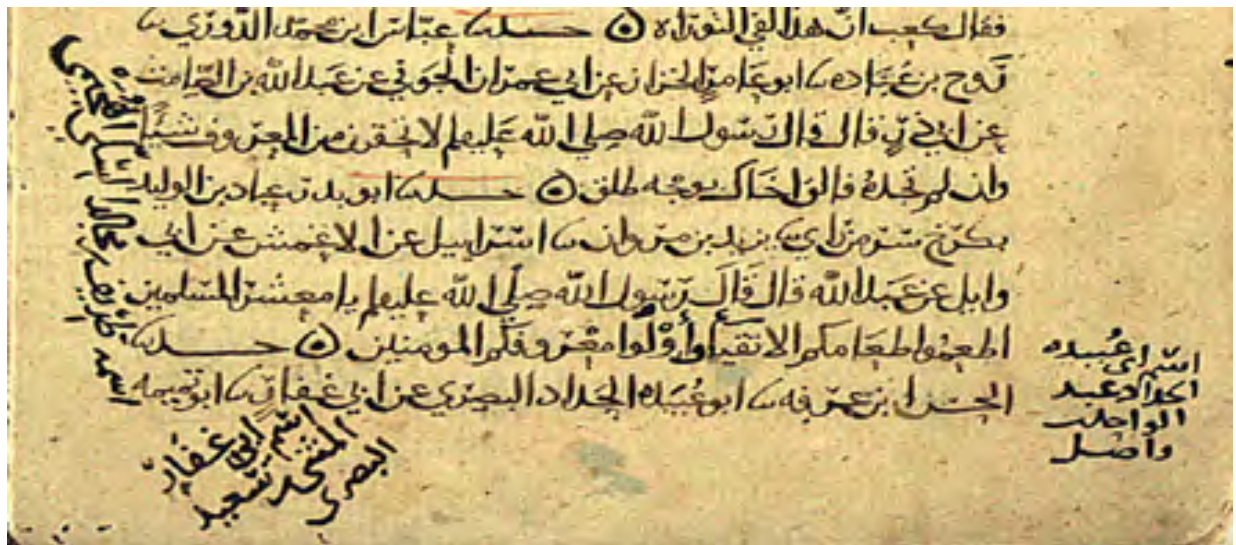 فقال كعب ان هذا لفي التوراه ۞ حدثنا عباس ابن محمد الدوري نا
روح بن عباده نا ابو عامر الخزاز عن ابي عمران الجوني عن عبد الله بن الصامت
عن ابي ذر قال قال رسول الله صلى الله عليه لا تحقرن من المعروف شيئا
وان لم تجده فالق اخاك بوجه طلق ۞ حدثنا ابو بدر عباد بن الوليد
بكرخ سر من راي نا يزيد بن مروان نا اسراييل عن الاعمش عن ابي
وايل عن عبد الله قال قال رسول الله صلى الله عليه يا معشر المسلمين
اطعموا طعامكم الاتقيا وأولوا معروفكم المومنين ۞ حدثنا
الحسن ابن عرفه نا ابو عبيده الحداد البصري عن ابي غفار نا ابو تميمه
اسم ابي عبيده
الحداد عبد
الواحد بن
واصل
اسم ابي غفار
المثنى بن سعيد
البصري